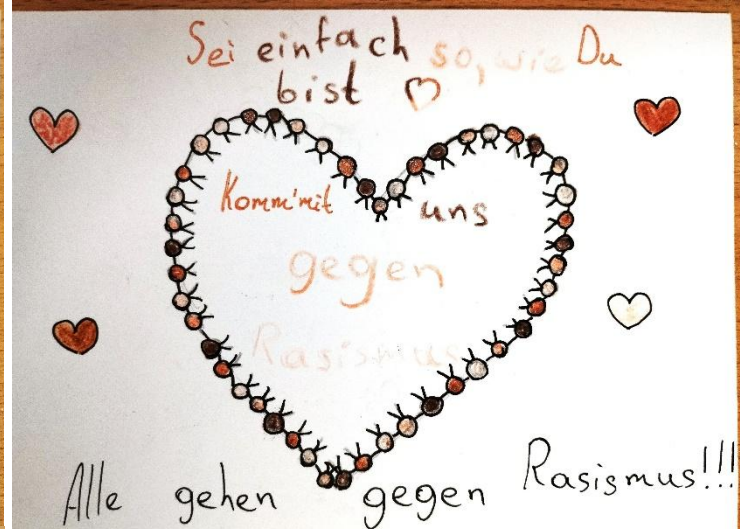 Sei einfach so, wie Du
bist ♡
Komm'mit uns
gegen
Rasismus
Alle gehen gegen Rasismus!!!